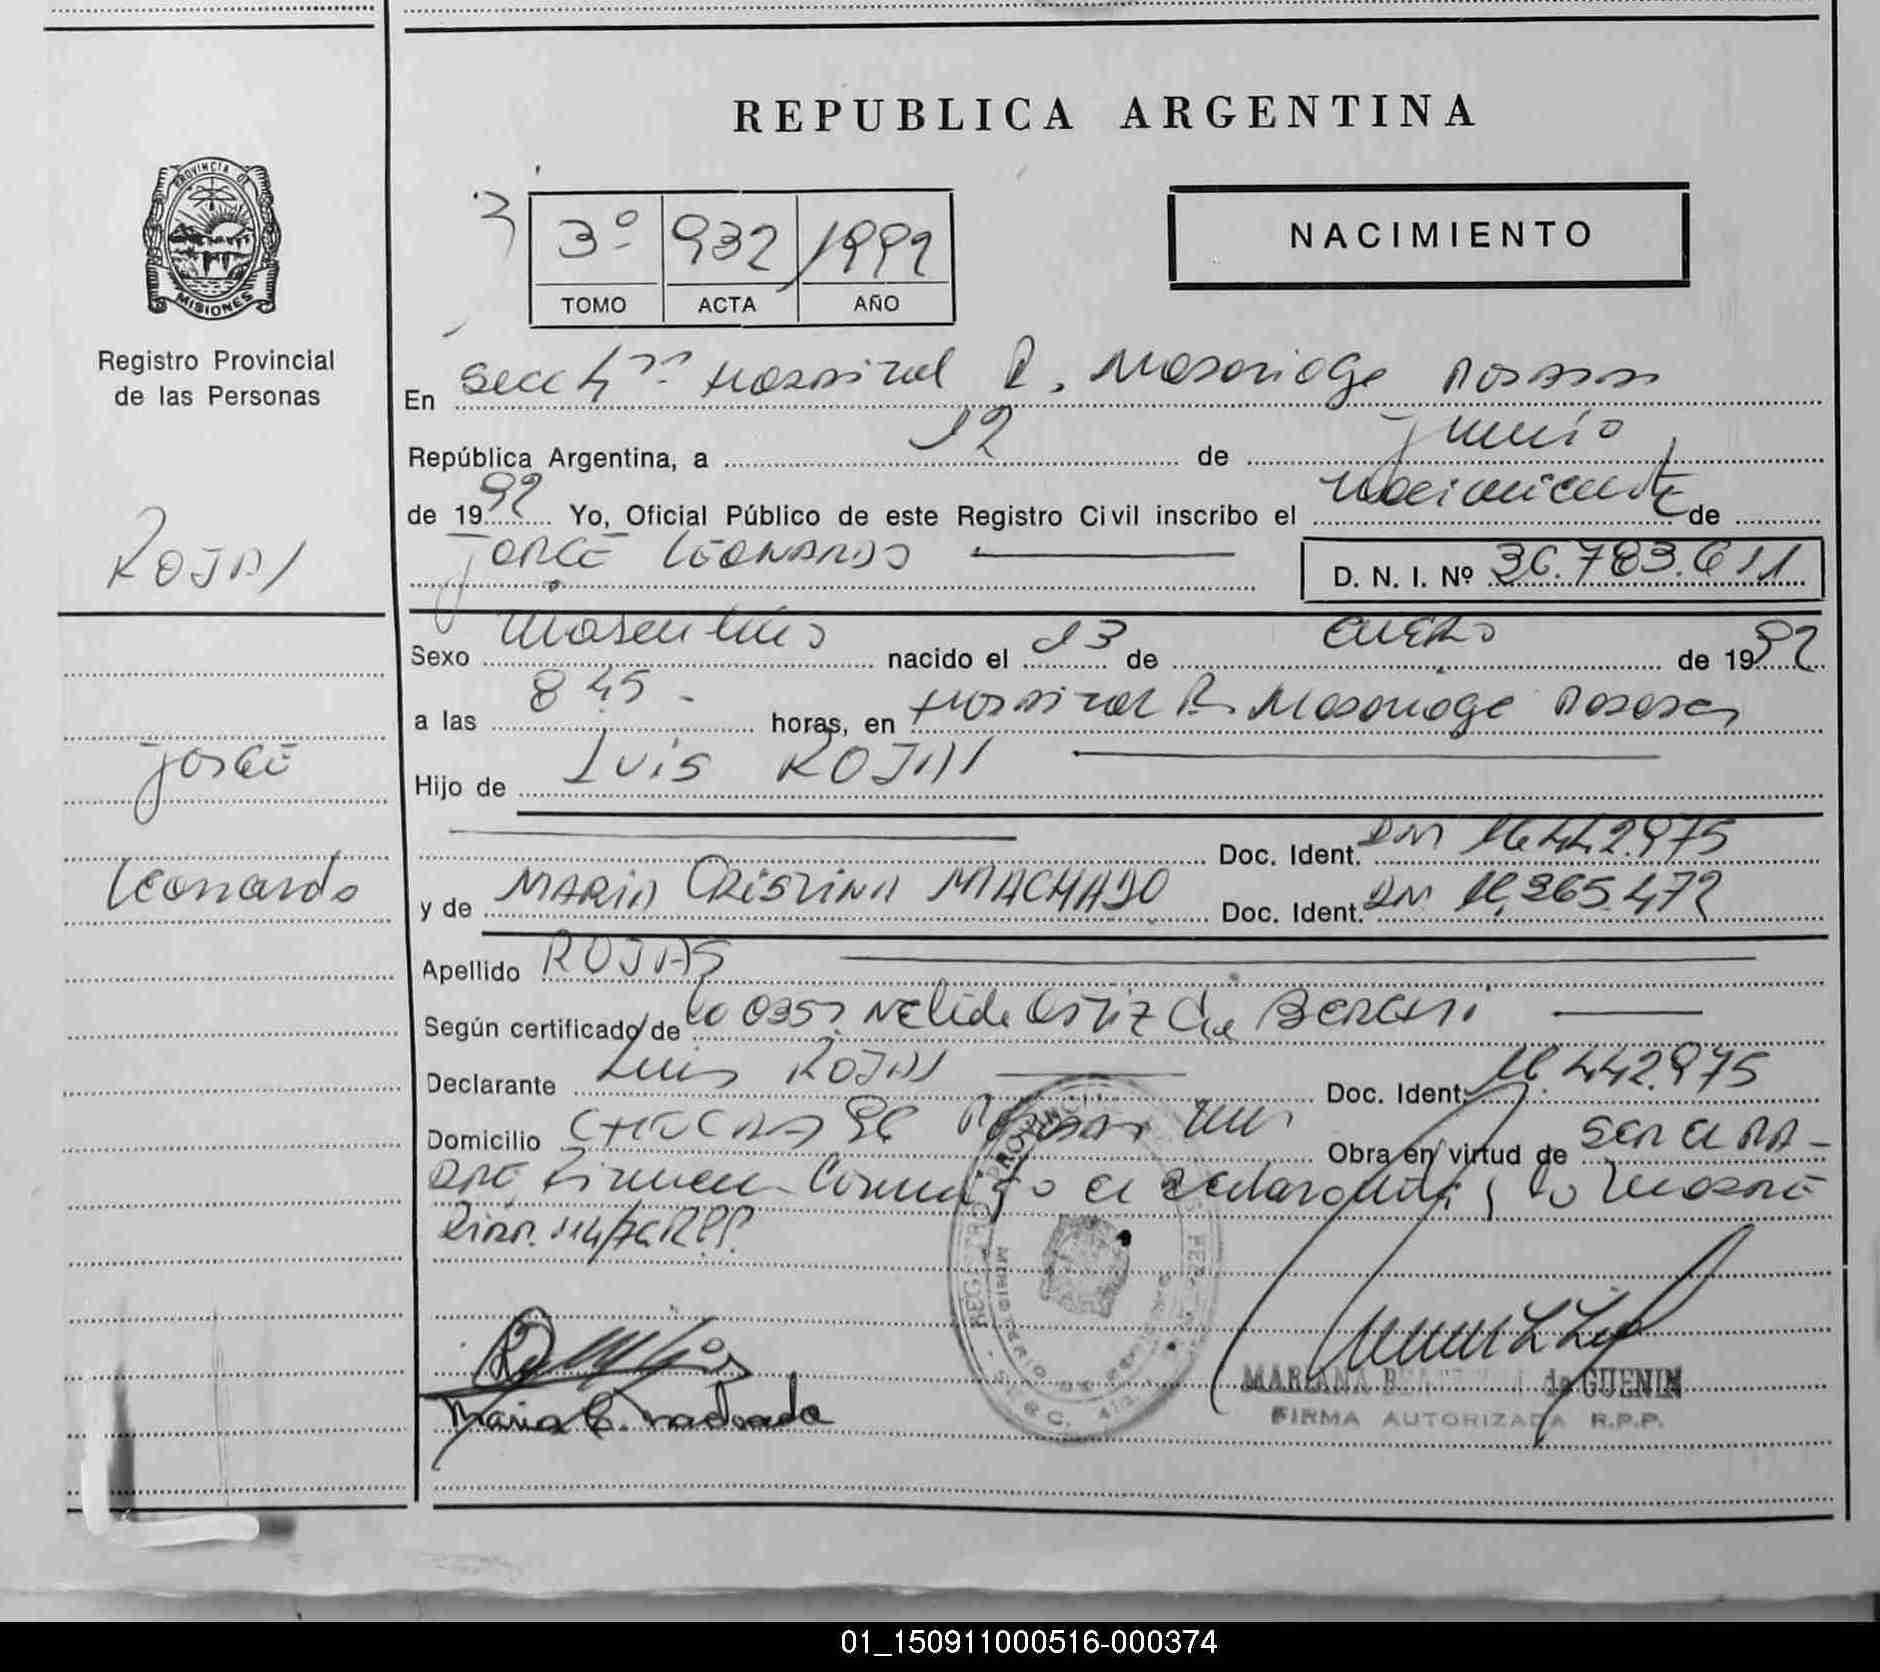 REPUBLICA ARGENTINA
PROVINCIA DE
MISIONES
Registro Provincial
de las Personas
3º 932 1992
TOMO ACTA AÑO
NACIMIENTO
En Secc 4ª Hospital R. Madariaga Posadas
República Argentina, a 12 de junio
de 1992 Yo, Oficial Público de este Registro Civil inscribo el nacimiento de
JORGE LEONARDO D. N. I. Nº 36.783.611
ROJAS
Jorge
Leonardo
Sexo Masculino nacido el 13 de enero de 1992
a las 8 45 horas, en Hospital R. Madariaga Posadas
Hijo de Luis ROJAS
Doc. Ident. DNI 16.442.975
y de MARIA CRISTINA MACHADO Doc. Ident. DNI 16.365.472
Apellido ROJAS
Según certificado/de Nelida Ortiz de
Declarante Luis ROJAS Doc. Ident. 16.442.975
Domicilio 96 Obra en virtud de ser el pa-
dre, firman conmigo el declarante y la madre
114/76 R.P.P.
Maria C. machado
MARIANA de GUENIN
FIRMA AUTORIZADA R.P.P.
01_150911000516-000374